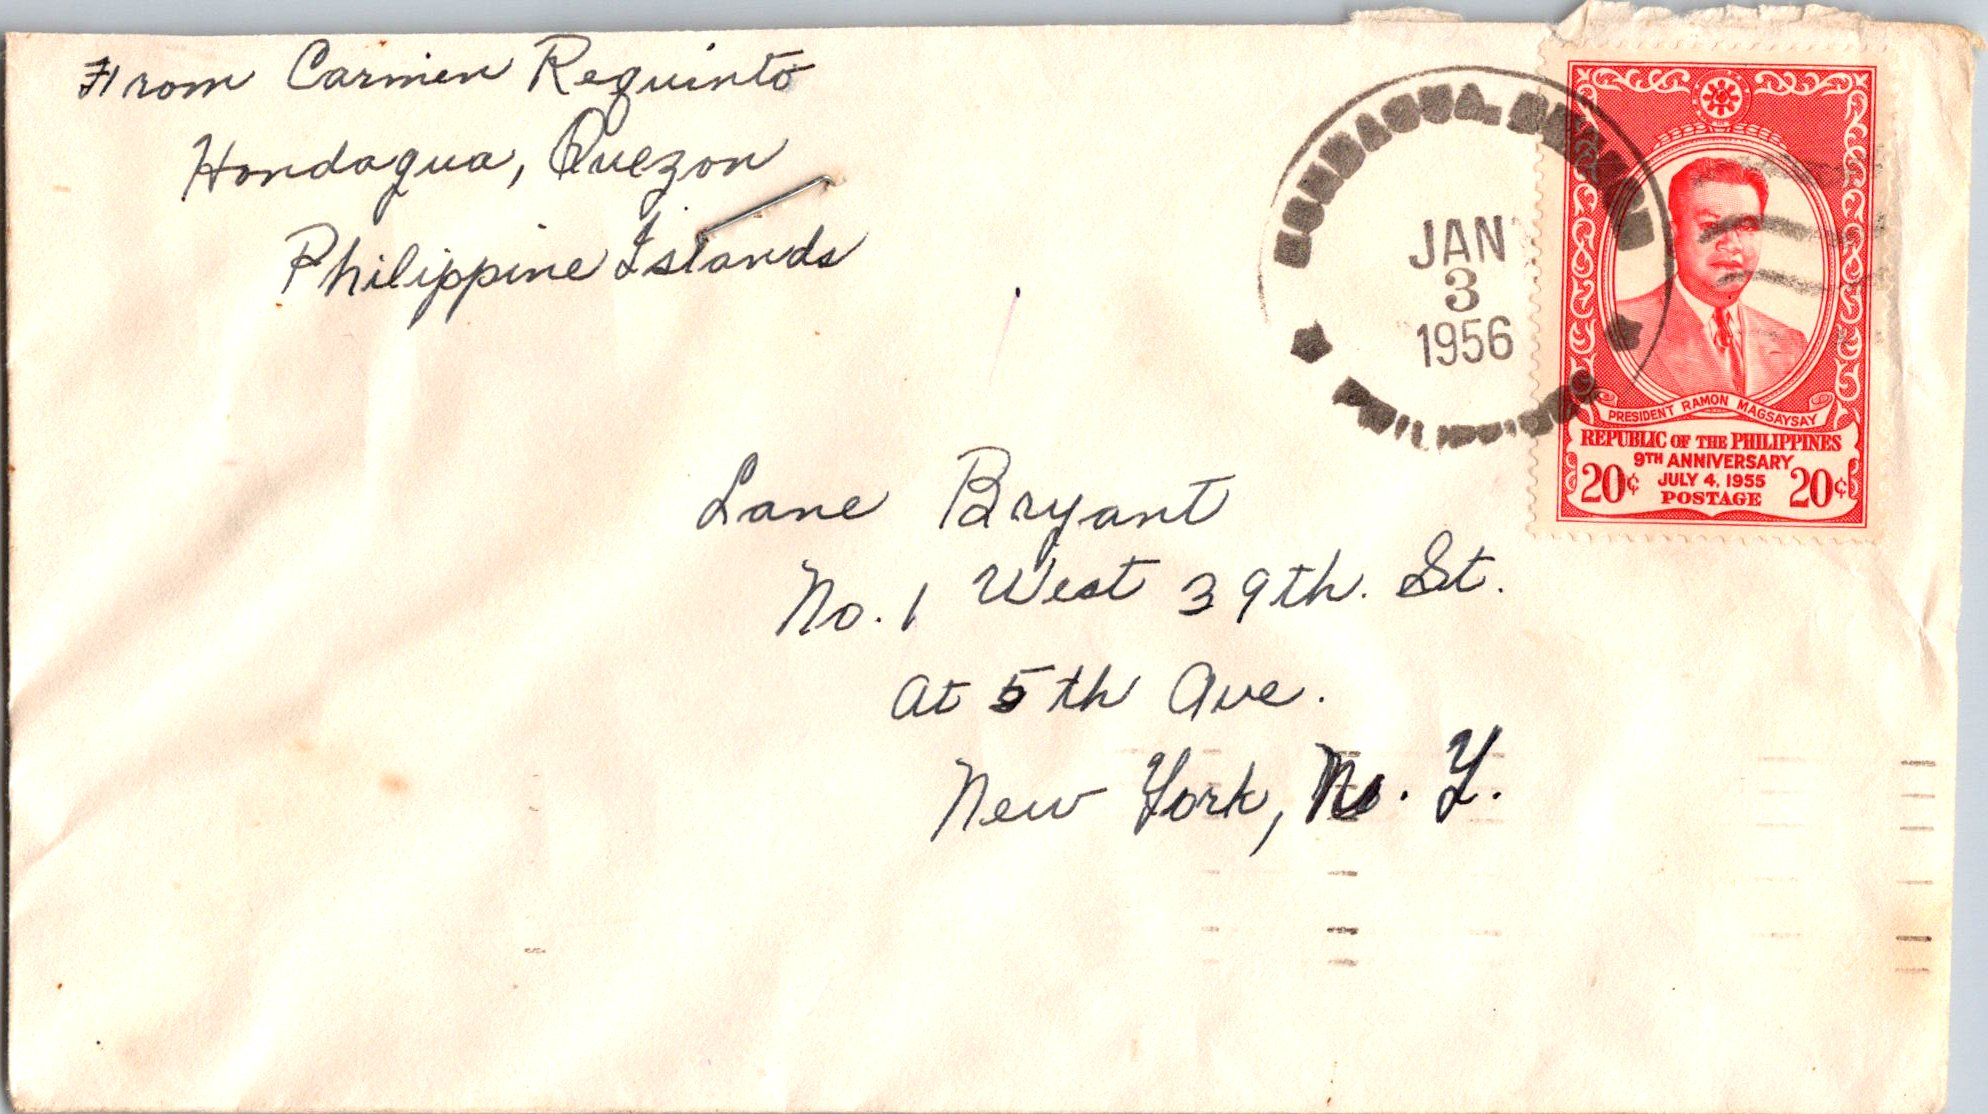 From Carmen Requinto
Hondagua, Quezon
Philippine Islands
HONDAGUA, QUEZON
JAN
3
1956
PRESIDENT RAMON MAGSAYSAY
REPUBLIC OF THE PHILIPPINES
9TH ANNIVERSARY
20¢ JULY 4, 1955 20¢
POSTAGE
Lane Bryant
No. 1 West 39th. St.
At 5th Ave.
New York, N. Y.